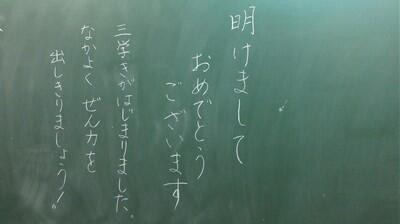 明けまして
おめでとう
ございます
三学きがはじまりました。
なかよく ぜん力を
出しきりましょう!